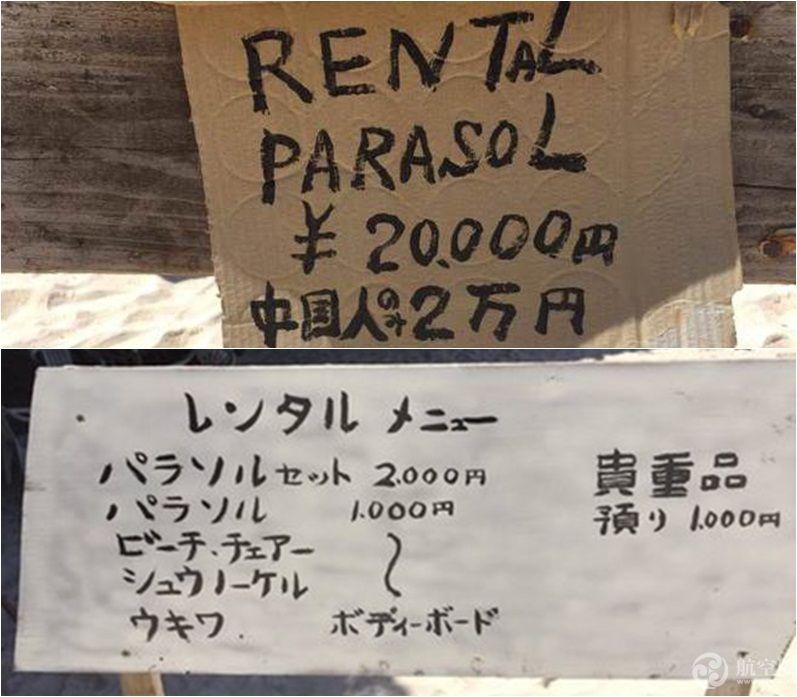 RENTAL
PARASOL
¥20.000円
中国人のみ2万円
レンタルメニュー
パラソルセット 2.000円
パラソル 1.000円
ビーチ.チェアー
シュウノーケル
〜
ウキワ ボディーボード
貴重品
預り 1.000円
航空
www.